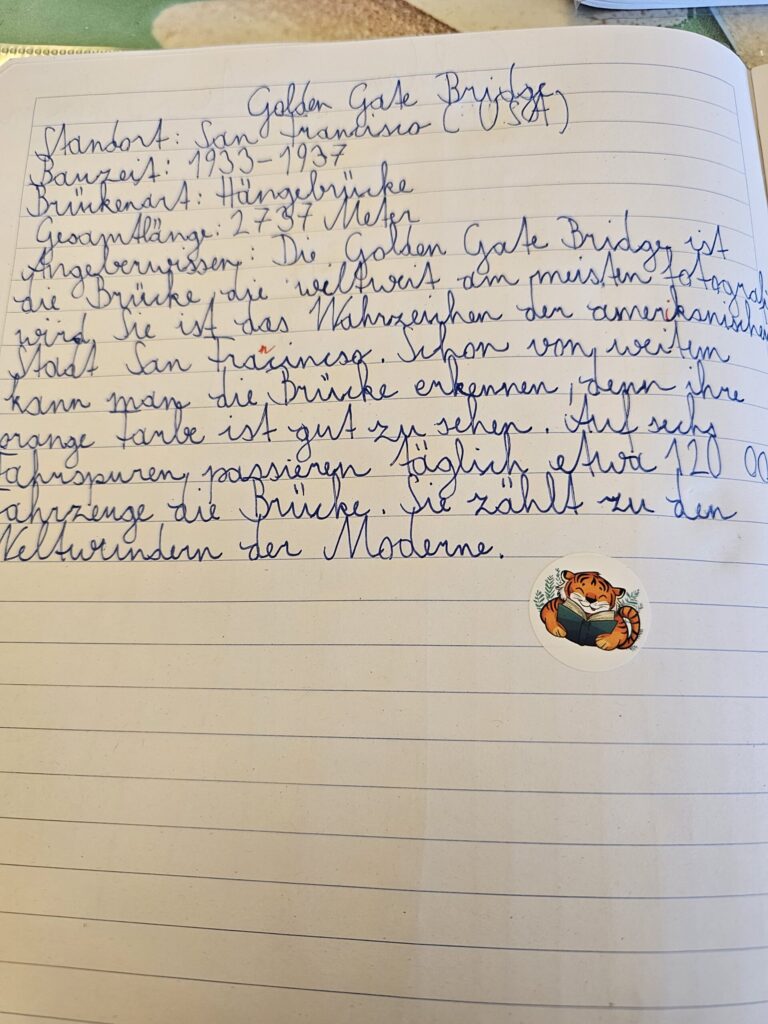 Golden Gate Bridge
Standort: San Francisco (USA)
Bauzeit: 1933-1937
Brückenart: Hängebrücke
Gesamtlänge: 2737 Meter
Angeberwissen: Die Golden Gate Bridge ist
die Brücke die weltweit am meisten fotografi
wird. Sie ist das Wahrzeichen der amerikanischen
Stadt San Francincso. Schon von weitem
kann man die Brücke erkennen, denn ihre
orange Farbe ist gut zu sehen. Auf sechs
Fahrspuren passieren täglich etwa 120 00
Fahrzeuge die Brücke. Sie zählt zu den
Weltwundern der Moderne.